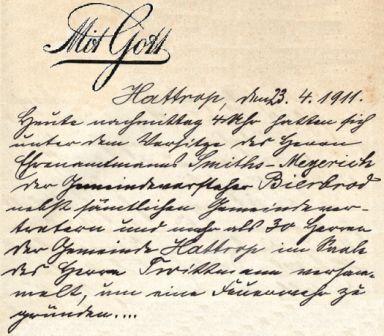 Mit Gott
Hattrop, den 23. 4. 1911.
Heute nachmittag 4 Uhr hatten sich
unter dem Vorsitze des Herrn
Ehrenamtmanns Smiths-Meyerich
der Gemeindevorsteher Bierbrod
nebst sämtlichen Gemeindever-
tretern und mehr als 30 Herren
der Gemeinde Hattrop im Saale
des Herrn Twittmann versam-
melt, um eine Feuerwehr zu
gründen....